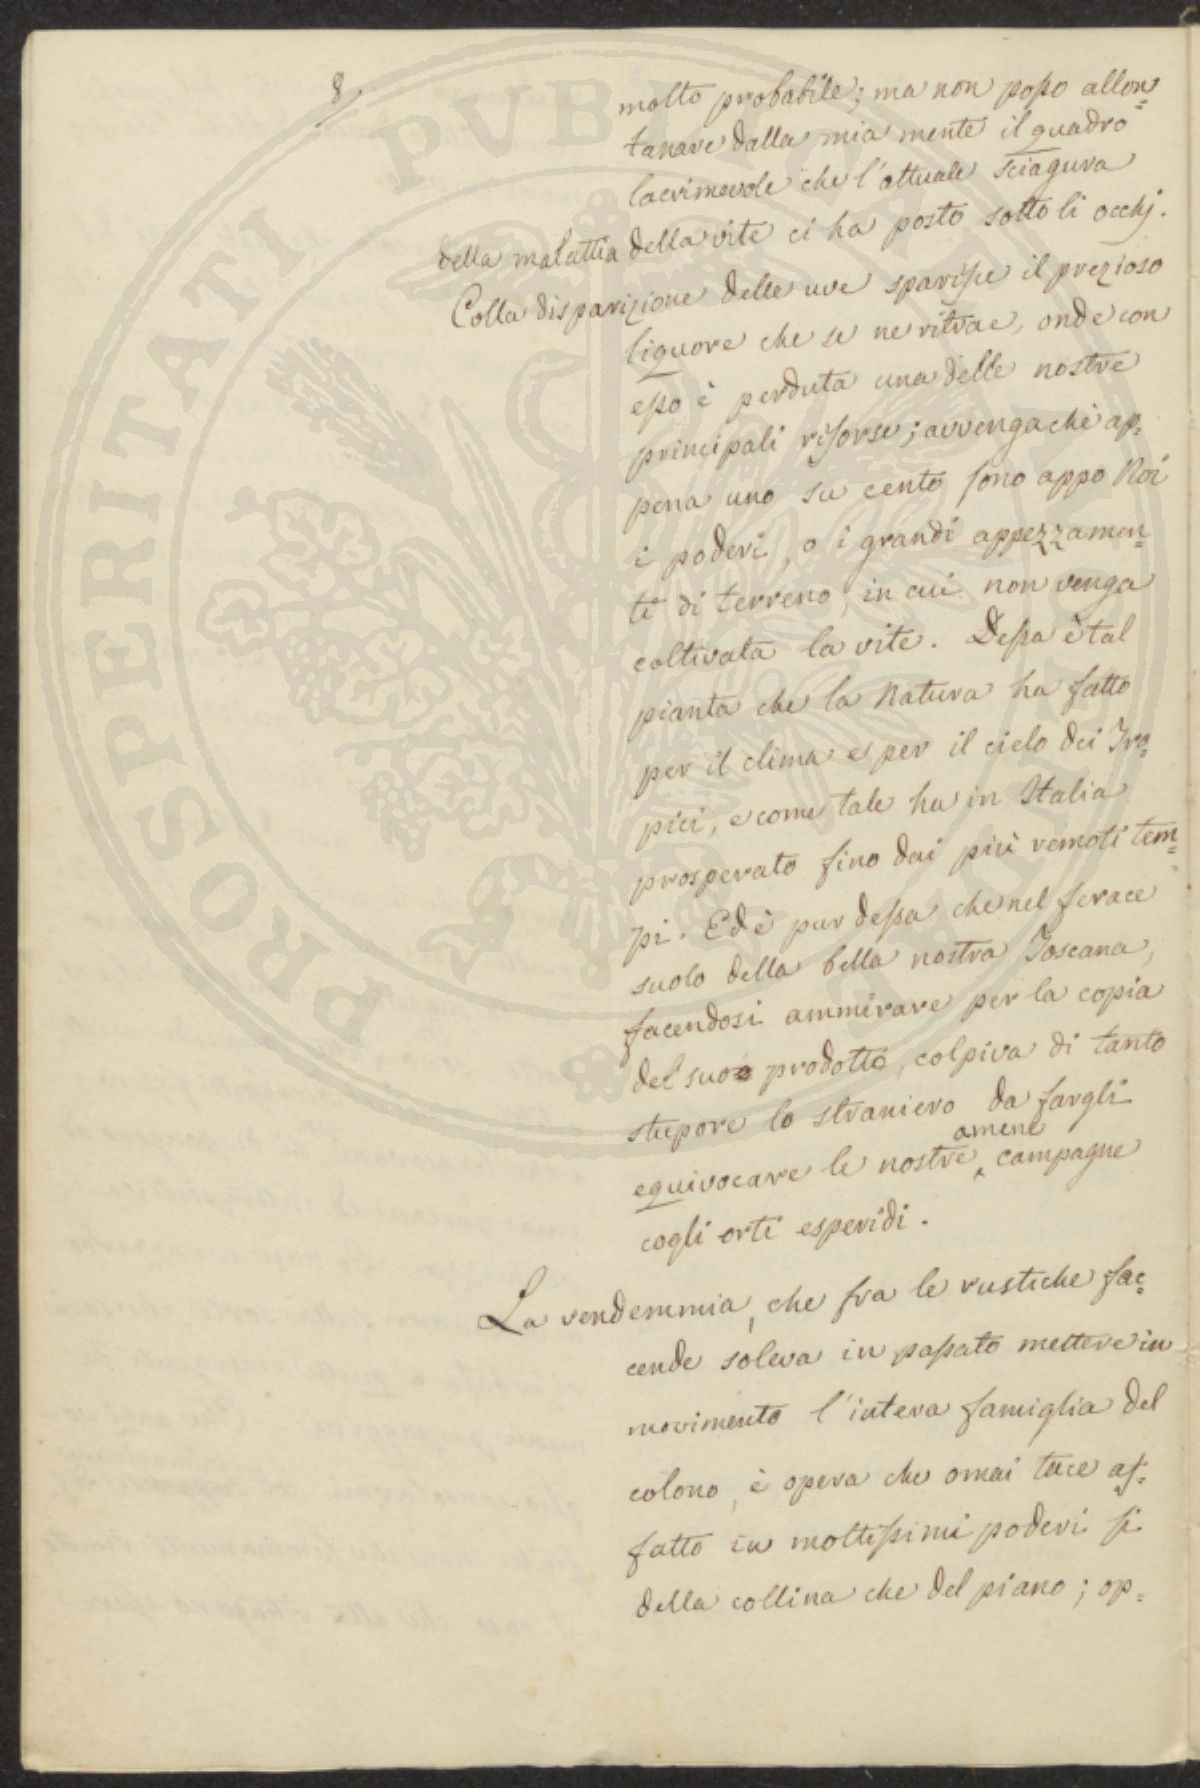 8
molto probabile; ma non posso allon=
tanare dalla mia mente il quadro
lacrimevole che l'attuale sciagura
della malattia della vite ci ha posto sotto li occhj.
Colla disparizione delle uve sparisce il prezioso
liquore che se ne ritrae, onde con
esso è perduta una delle nostre
principali risorse; avvengachè ap=
pena uno su cento sono appo Noi
i poderi, o i grandi appezzamen=
ti di terreno, in cui non venga
coltivata la vite. Dessa è tal
pianta che la Natura ha fatto
per il clima e per il cielo dei Tro=
pici, e come tale ha in Italia
prosperato fino dai più remoti tem=
pi. Ed è pur dessa che nel ferace
suolo della bella nostra Toscana,
facendosi ammirare per la copia
del suo prodotto, colpiva di tanto
stupore lo straniero da fargli
equivocare le nostre amene campagne
cogli orti esperidi.
La vendemmia, che fra le rustiche fac=
cende soleva in passato mettere in
movimento l'intera famiglia del
colono, è opera che omai tace af=
fatto in moltissimi poderi sì
della collina che del piano; op=
PROSPERITATI PVBLICAE AVGENDAE